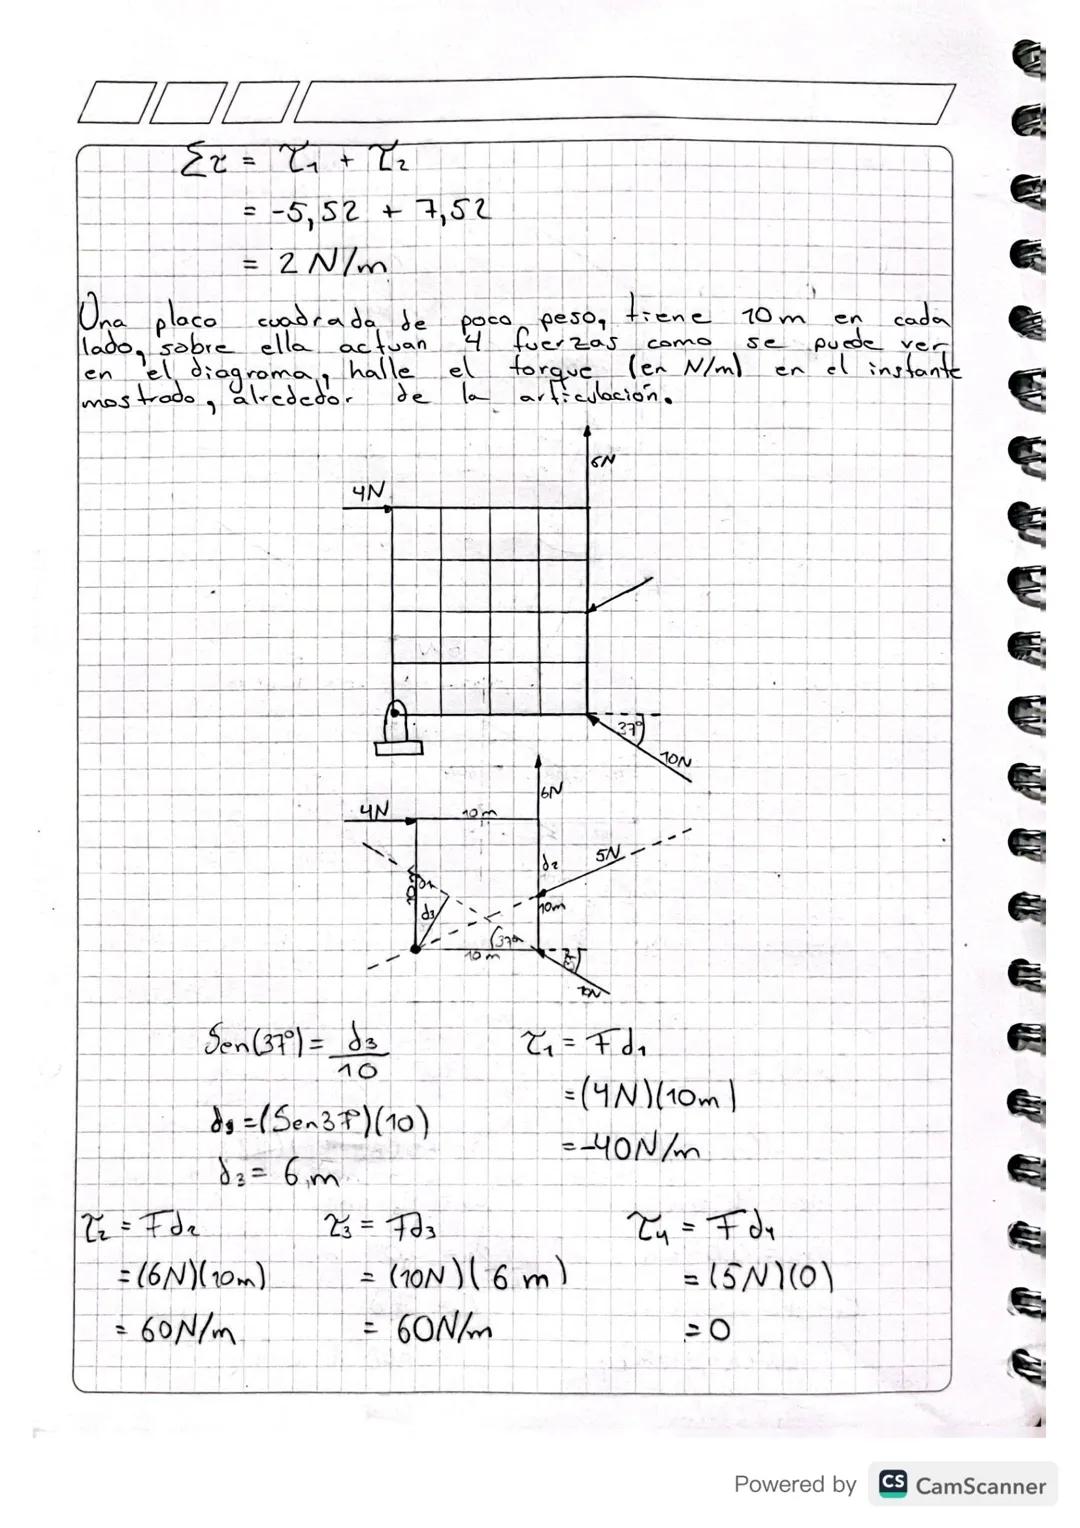 Στ = τ₁ + τ₂
= -5,52 + 7,52
= 2 N/m
Una placa cuadrada de poco peso, tiene 10m en cada
lado, sobre ella actuan 4 fuerzas como se puede ver
en el diagrama, halle el torque (en N/m) en el instante
mostrado, alrededor de la articulación.
6N
4N
37°
10N
6N
4N
10m
d₂
5N
10m
d₁
d₃
10m
37°
10m
37°
10N
Sen(37°) = d₃/10
τ₁ = Fd₁
=(4N)(10m)
d₃ =(Sen37°)(10)
=-40N/m
d₃ = 6m
τ₂ = Fd₂
τ₃ = Fd₃
τ₄ = Fd₄
=(6N)(10m)
= (10N)(6m)
= (5N)(0)
= 60N/m
= 60N/m
= 0
Powered by CS CamScanner